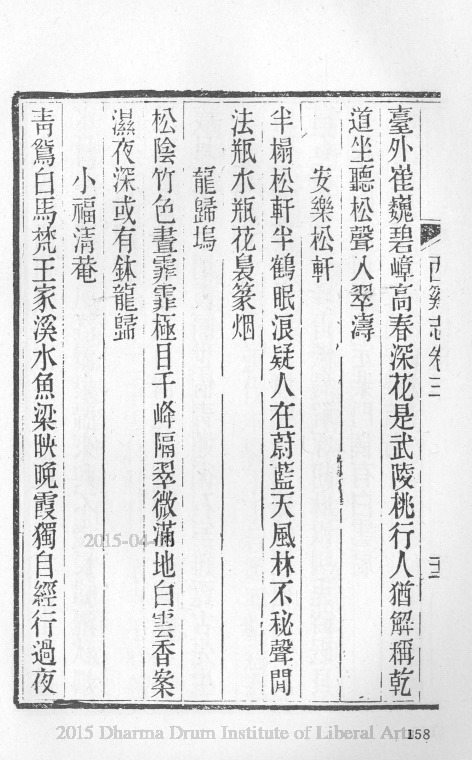 西谿志卷三
臺外崔巍碧嶂高春深花是武陵桃行人猶解稱乾
道坐聽松聲入翠濤
安樂松軒
半榻松軒半鶴眠浪疑人在蔚藍天風林不秘聲聞
法瓶水瓶花裊篆烟
龍歸塢
松陰竹色晝霏霏極目千峰隔翠微滿地白雲香案
濕夜深或有鉢龍歸
小福清菴
青鴛白馬梵王家溪水魚梁映晚霞獨自經行過夜
2015-04-
2015 Dharma Drum Institute of Liberal Arts
158